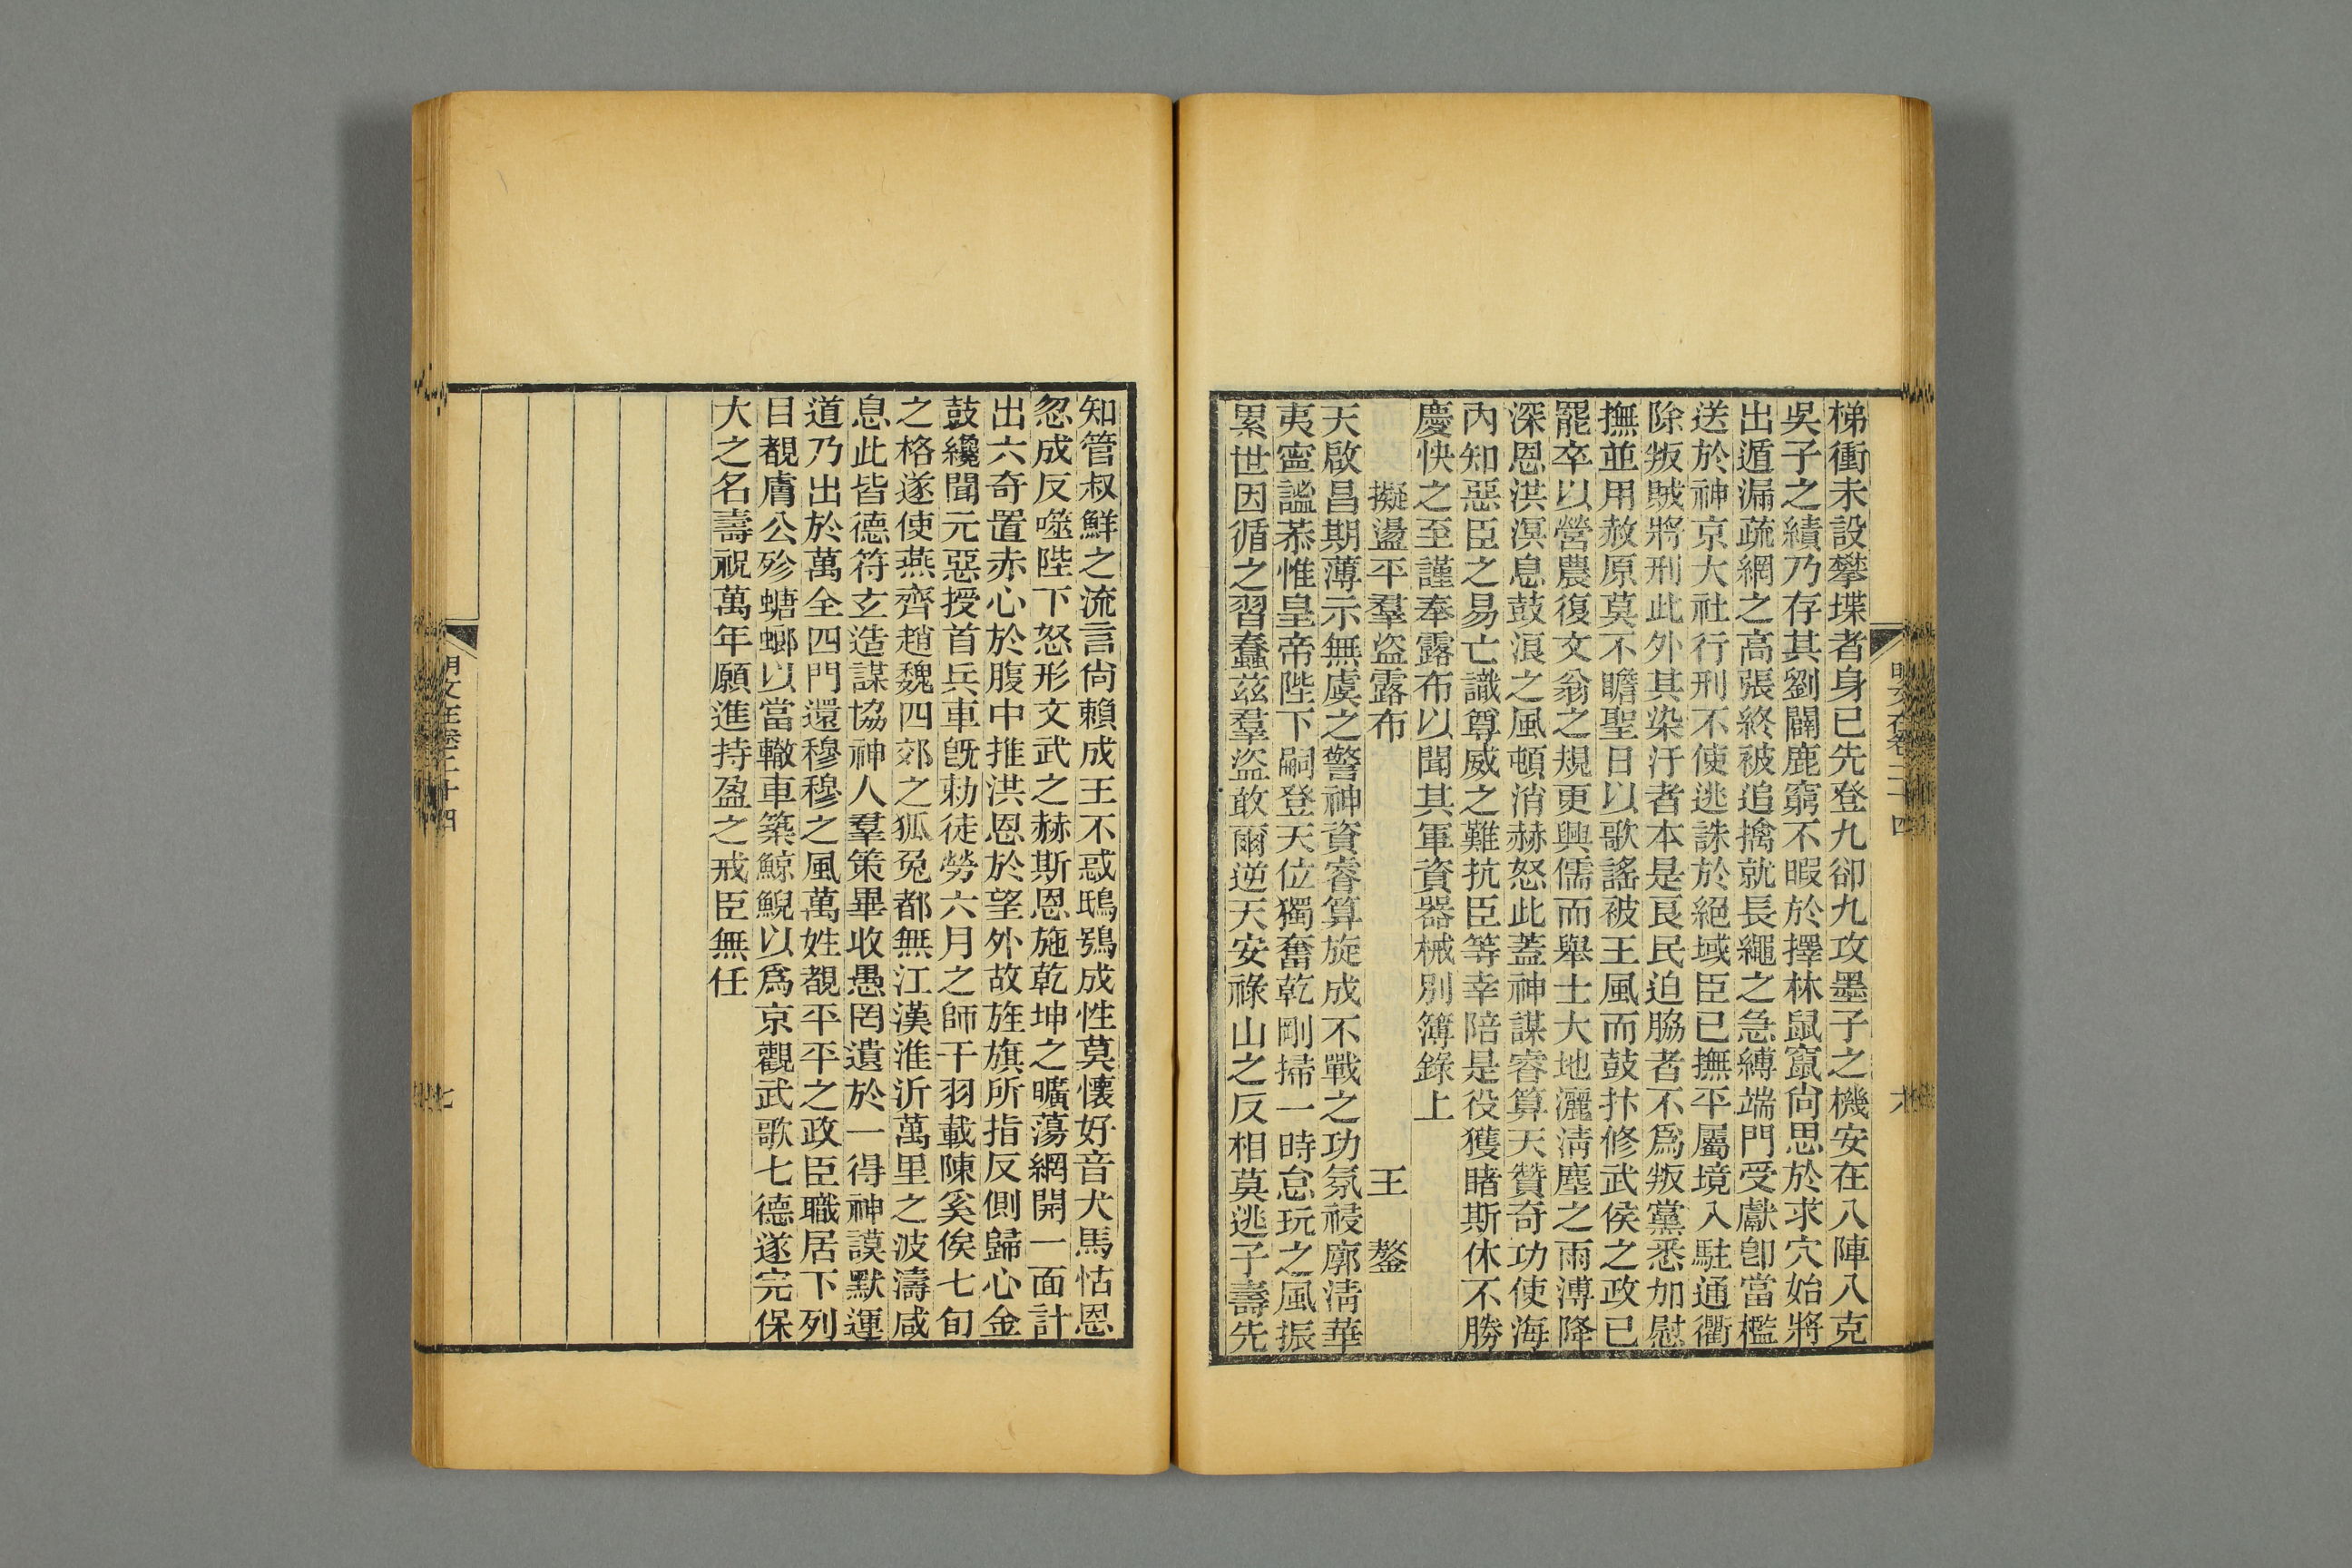 梯衝未設攀堞者身已先登九卻九攻墨子之機安在八陣八克
吳子之績乃存其劉闢鹿窮不暇於擇林鼠竄尙思於求穴始將
出遁漏疏網之高張終被追擒就長繩之急縛端門受獻卽當檻
送於神京大社行刑不使逃誅於絕域臣已撫平屬境入駐通衢
除叛賊將刑此外其染汙者本是良民迫脇者不爲叛黨悉加慰
撫並用赦原莫不瞻聖日以歌謠被王風而鼓抃修武侯之政已
罷卒以營農復文翁之規更興儒而舉士大地灑淸塵之雨溥降
深恩洪溟息鼓浪之風頓消赫怒此蓋神謀睿算天贊奇功使海
內知惡臣之易亡識尊威之難抗臣等幸陪是役獲睹斯休不勝
慶快之至謹奉露布以聞其軍資器械別簿錄上
擬盪平羣盜露布 王 鏊
天啟昌期薄示無虞之警神資睿算旋成不戰之功氛祲廓淸華
夷寧謐恭惟皇帝陛下嗣登天位獨奮乾剛掃一時怠玩之風振
累世因循之習蠢茲羣盜敢爾逆天安祿山之反相莫逃子壽先
明文在卷二十四
六
知管叔鮮之流言尙賴成王不惑鴟鴞成性莫懷好音犬馬怙恩
忽成反噬陛下怒形文武之赫斯恩施乾坤之曠蕩網開一面計
出六奇置赤心於腹中推洪恩於望外故旌旗所指反側歸心金
鼓纔聞元惡授首兵車旣勑徒勞六月之師干羽載陳奚俟七旬
之格遂使燕齊趙魏四郊之狐兔都無江漢淮沂萬里之波濤咸
息此皆德符玄造謀協神人羣策畢收愚罔遺於一得神謨默運
道乃出於萬全四門還穆穆之風萬姓覩平平之政臣職居下列
目覩膚公殄螗螂以當轍車築鯨鯢以爲京觀武歌七德遂完保
大之名壽祝萬年願進持盈之戒臣無任
明文在卷二十四
七